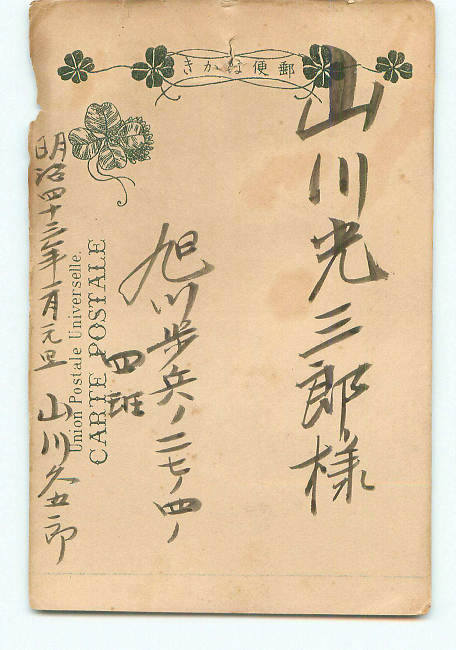 郵便はかき
山川光三郎様
旭川歩兵ノ二七ノ四ノ
四班
明治四十三年一月元旦 山川久五郎
Union Postale Universelle.
CARTE POSTALE